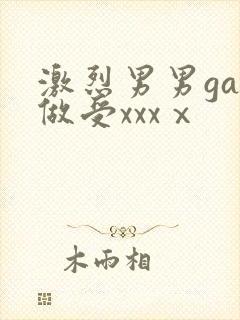 激烈男男ga
做受xxx x
木雨相